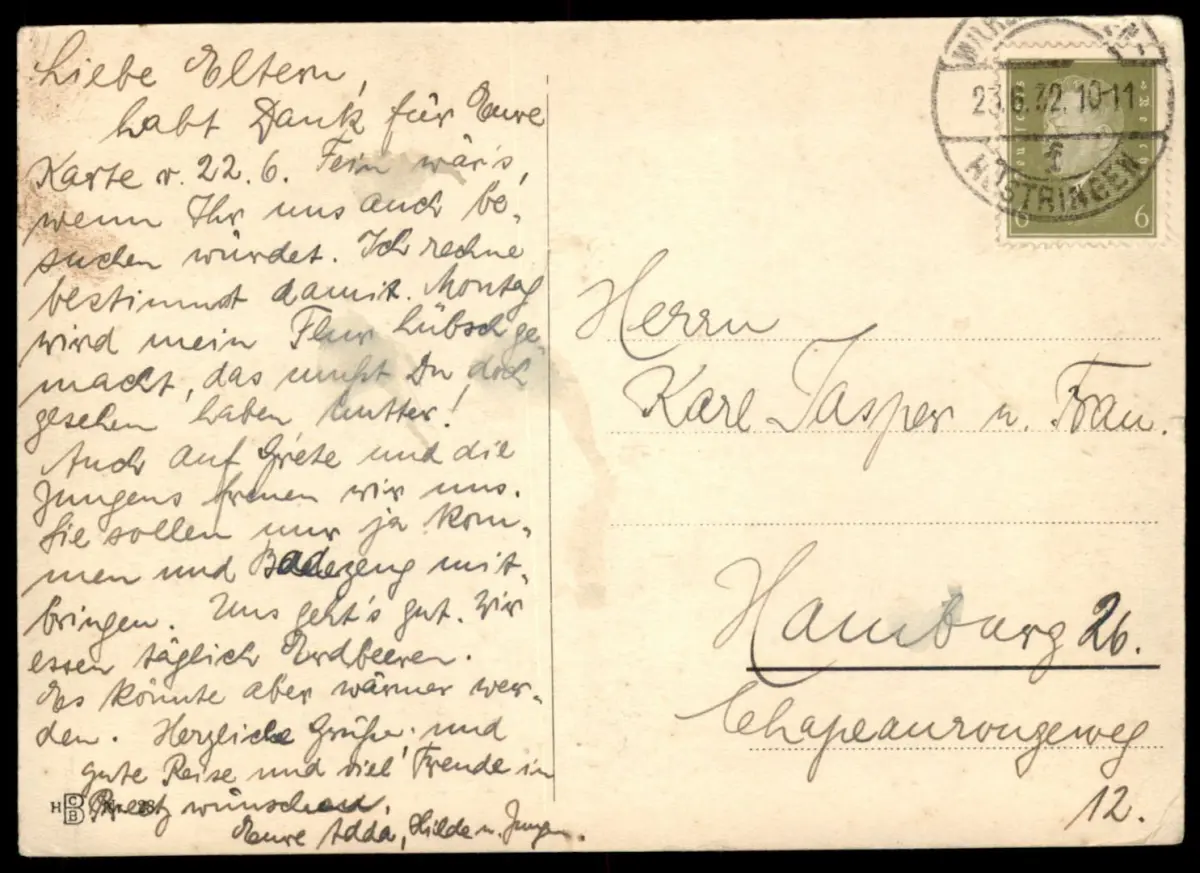 Liebe Eltern,
habt Dank für Eure
Karte v. 22.6. Fein wär's,
wenn Ihr uns auch be-
suchen würdet. Ich rechne
bestimmt damit. Montag
wird mein Flur hübsch ge-
macht, das mußt Du doch
gesehen haben Mutter!
Auch auf Grete und die
Jungens freuen wir uns.
Sie sollen nur ja kom-
men und Badezeug mit-
bringen. Uns geht's gut. Wir
essen täglich Erdbeeren.
Es könnte aber wärmer wer-
den. Herzliche Grüße und
gute Reise und viel Freude in
Preetz wünschen.
Eure Adda, Hilde u. Jungen.
HCB Nr. 28
23.6.32.10-11
RÜSTRINGEN
6 6
Herrn
Karl Jasper u. Frau.
Hamburg 26.
Chapeaurougeweg
12.